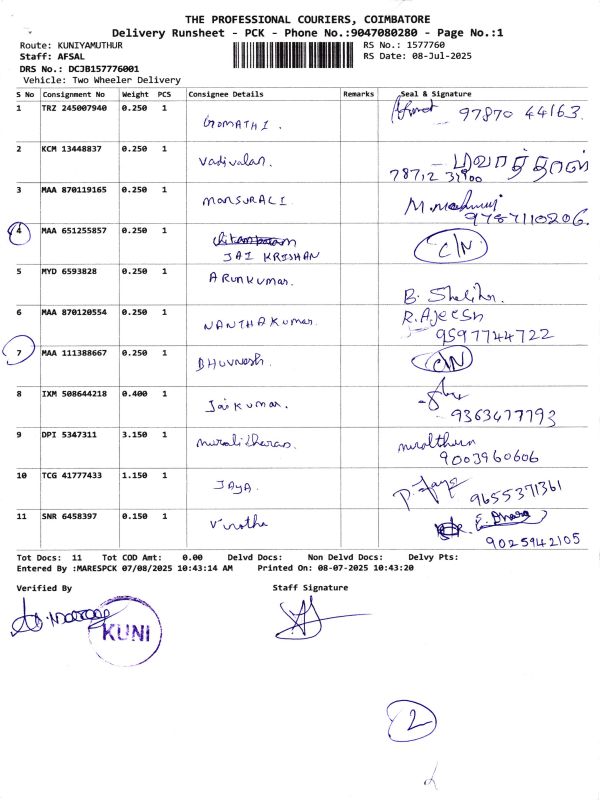 THE PROFESSIONAL COURIERS, COIMBATORE
Delivery Runsheet - PCK - Phone No.:9047080280 - Page No.:1
Route: KUNIYAMUTHUR RS No.: 1577760
Staff: AFSAL RS Date: 08-Jul-2025
DRS No.: DCJB157776001
Vehicle: Two Wheeler Delivery
S No Consignment No Weight PCS Consignee Details Remarks Seal & Signature
1 TRZ 245007940 0.250 1 GOMATHI. 97870 44163.
2 KCM 13448837 0.250 1 Vadivalan.
3 MAA 870119165 0.250 1 MANSURALI. 9787110206.
4 MAA 651255857 0.250 1 C/N
JAI KRISHAN
5 MYD 6593828 0.250 1 ARUNKUMAR.
6 MAA 870120554 0.250 1 NANTHAKUMAR. R.AJEESH
9597744722
7 MAA 111388667 0.250 1 BHUVNESH. C/N
8 IXM 508644218 0.400 1 Jaikumar. 9363477793
9 DPI 5347311 3.150 1 muralitharan. 9003960606
10 TCG 41777433 1.150 1 JAYA. P. Jaya 9655371361
11 SNR 6458397 0.150 1 9025942105
Tot Docs: 11 Tot COD Amt: 0.00 Delvd Docs: Non Delvd Docs: Delvy Pts:
Entered By :MARESPCK 07/08/2025 10:43:14 AM Printed On: 08-07-2025 10:43:20
Verified By Staff Signature
KUNI
2